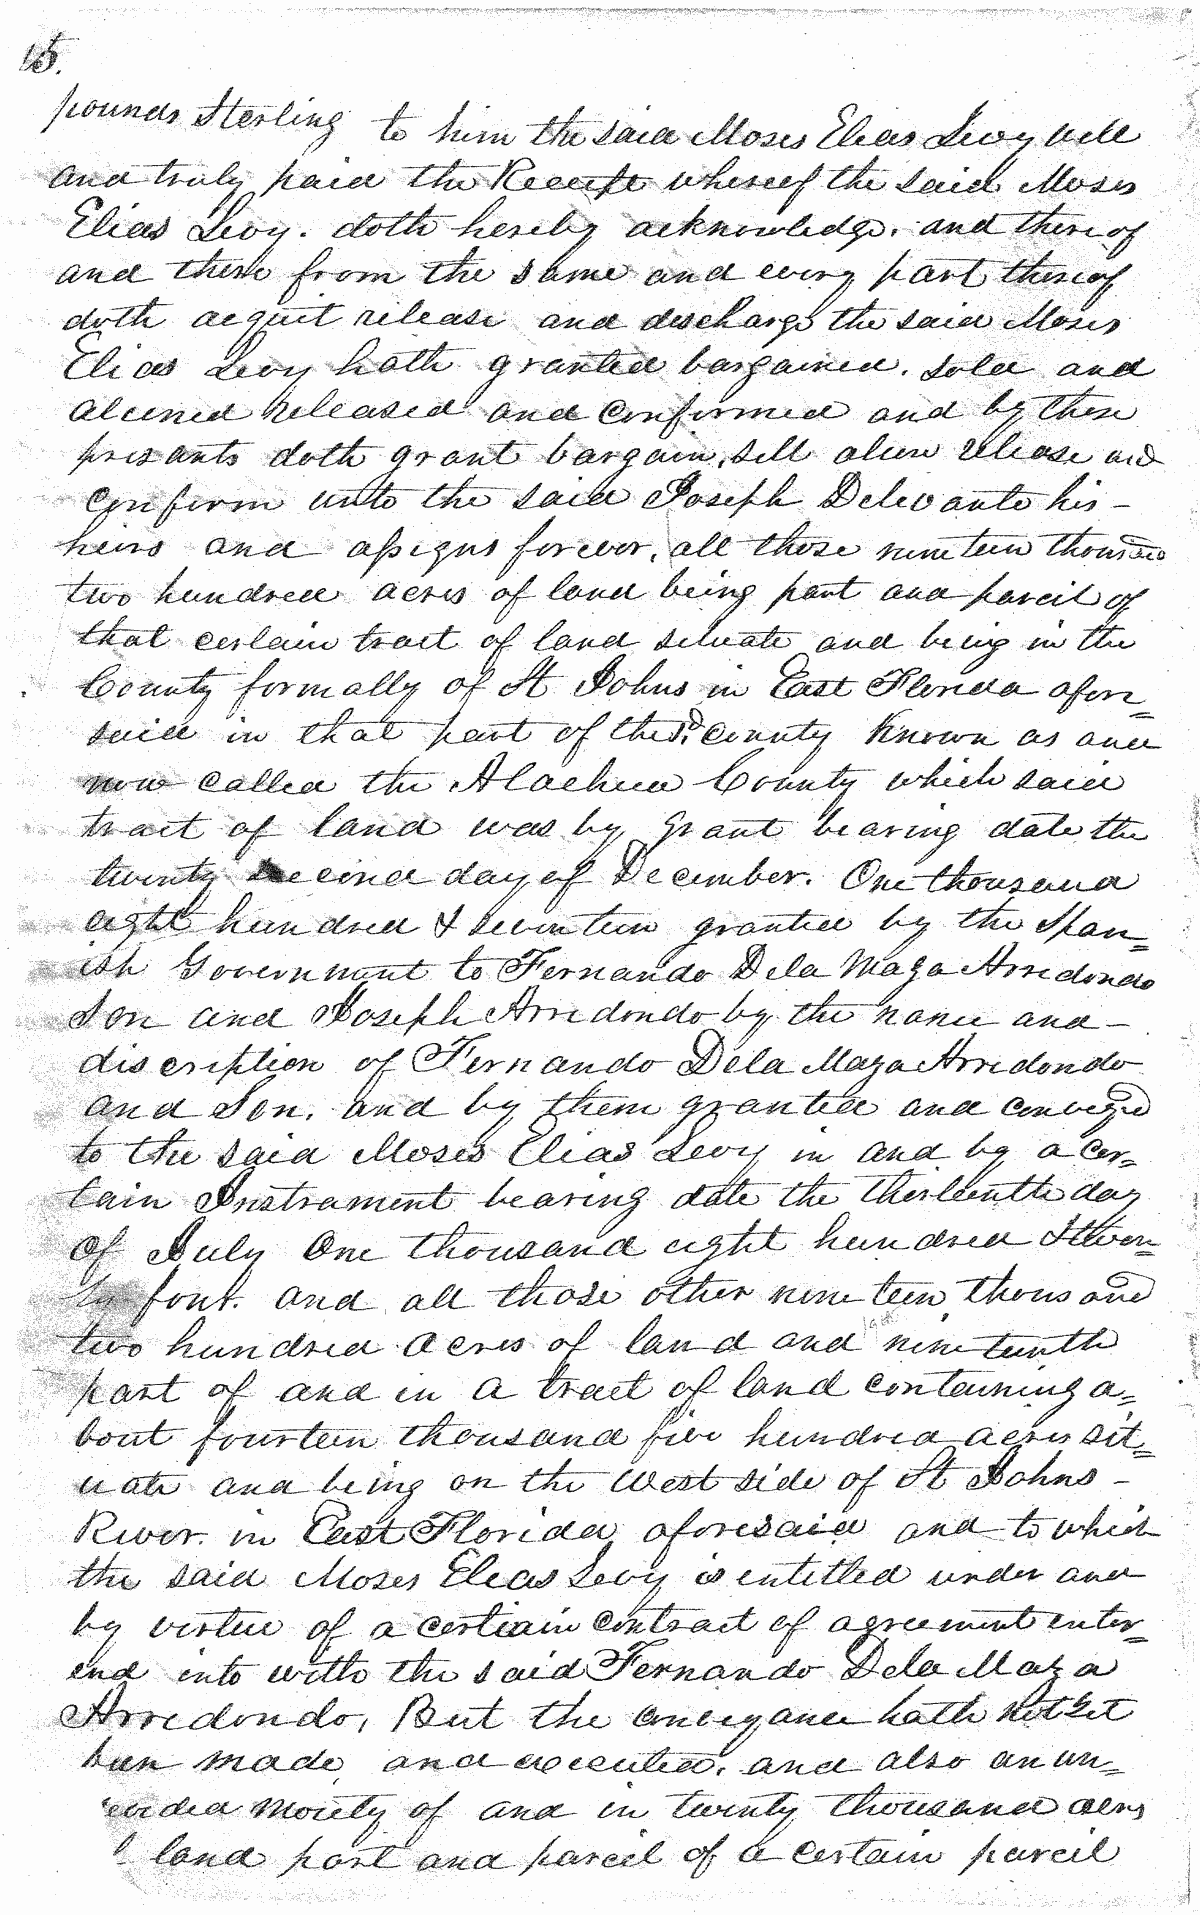 15.
pounds Sterling to him the said Moses Elias Levy well
and truly paid the Receipt whereof the said Moses
Elias Levy. doth hereby acknowledge. and thereof
and there from the same and every part thereof
doth acquit release and discharge the said Moses
Elias Levy hath granted bargained. sold and
aliened released and confirmed and by these
presants doth grant bargain, sell alien release and
confirm unto the said Joseph Delevante his -
heirs and assigns forever, all those nineteen thousand
two hundred acres of land being part and parcil of
that certain tract of land situate and being in the
County formally of St Johns in East Florida afore=
said in that part of the sd. County Known as and
now called the Alachua County which said
tract of land was by grant bearing date the
twenty second day of December. One thousand
eight hundred & seventeen granted by the Span=
ish Government to Fernando Dela Maza Arredondo
Son and Joseph Arredondo by the name and -
discription of Fernando Dela Maza Arredondo
and Son. and by them granted and conveyed
to the said Moses Elias Levy in and by a cer=
tain Instrament bearing date the thirteenth day
of July One thousand eight hundred & twen=
ty four. and all those other nineteen thousand
two hundred acres of land and nineteenth
part of and in a tract of land containing a=
bout fourteen thousand five hundred acres sit=
uate and being on the West side of St Johns -
River. in East Florida aforesaid and to which
the said Moses Elias Levy is entitled under and
by virtue of a certiain contract of agreement enter=
end into with the said Fernando Dela Maza
Arredondo, But the conveyance hath not yet
been made, and executed. and also an un=
ended moiety of and in twenty thousand acres
land part and parcel of a certain parcil